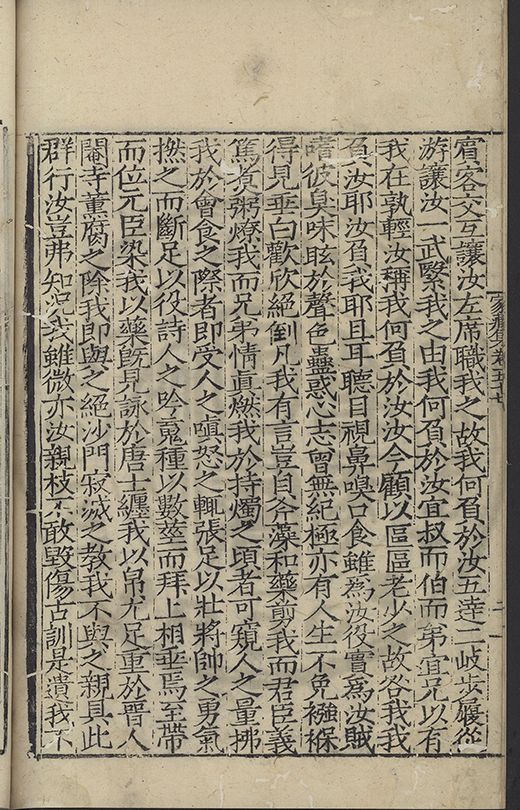 賔客交互讓汝左席職我之故我何負於汝五達二岐步履從
游讓汝一武繄我之由我何負於汝宜叔而伯而弟宜兄以有
我在孰輕汝稱我何負於汝汝今顧以區區老少之故咎我我
負汝耶汝負我耶且耳聽目視鼻嗅口食雖爲汝役實爲汝賊
嗜彼臭味眩於聲色蠱惑心志曾無紀極亦有人生不免襁褓
得見垂白歡欣絕倒凡我有言豈自斧藻和藥剪我而君臣義
篤煑粥燎我而兄弟情眞燃我於持燭之頃者可窺人之量拂
我於會食之際者即受人之嗔怒之輒張足以壯將帥之勇氣
撚之而斷足以役詩人之吟䰟種以數莖而拜上相垂焉至帶
而位元臣染我以藥旣見詠於唐士纏我以帛尤足重於晉人
閹寺薰腐之除我即與之絕沙門寂滅之教我不與之親具此
群行汝豈弗知况我雖微亦汝親枝不敢毀傷古訓是遺我不